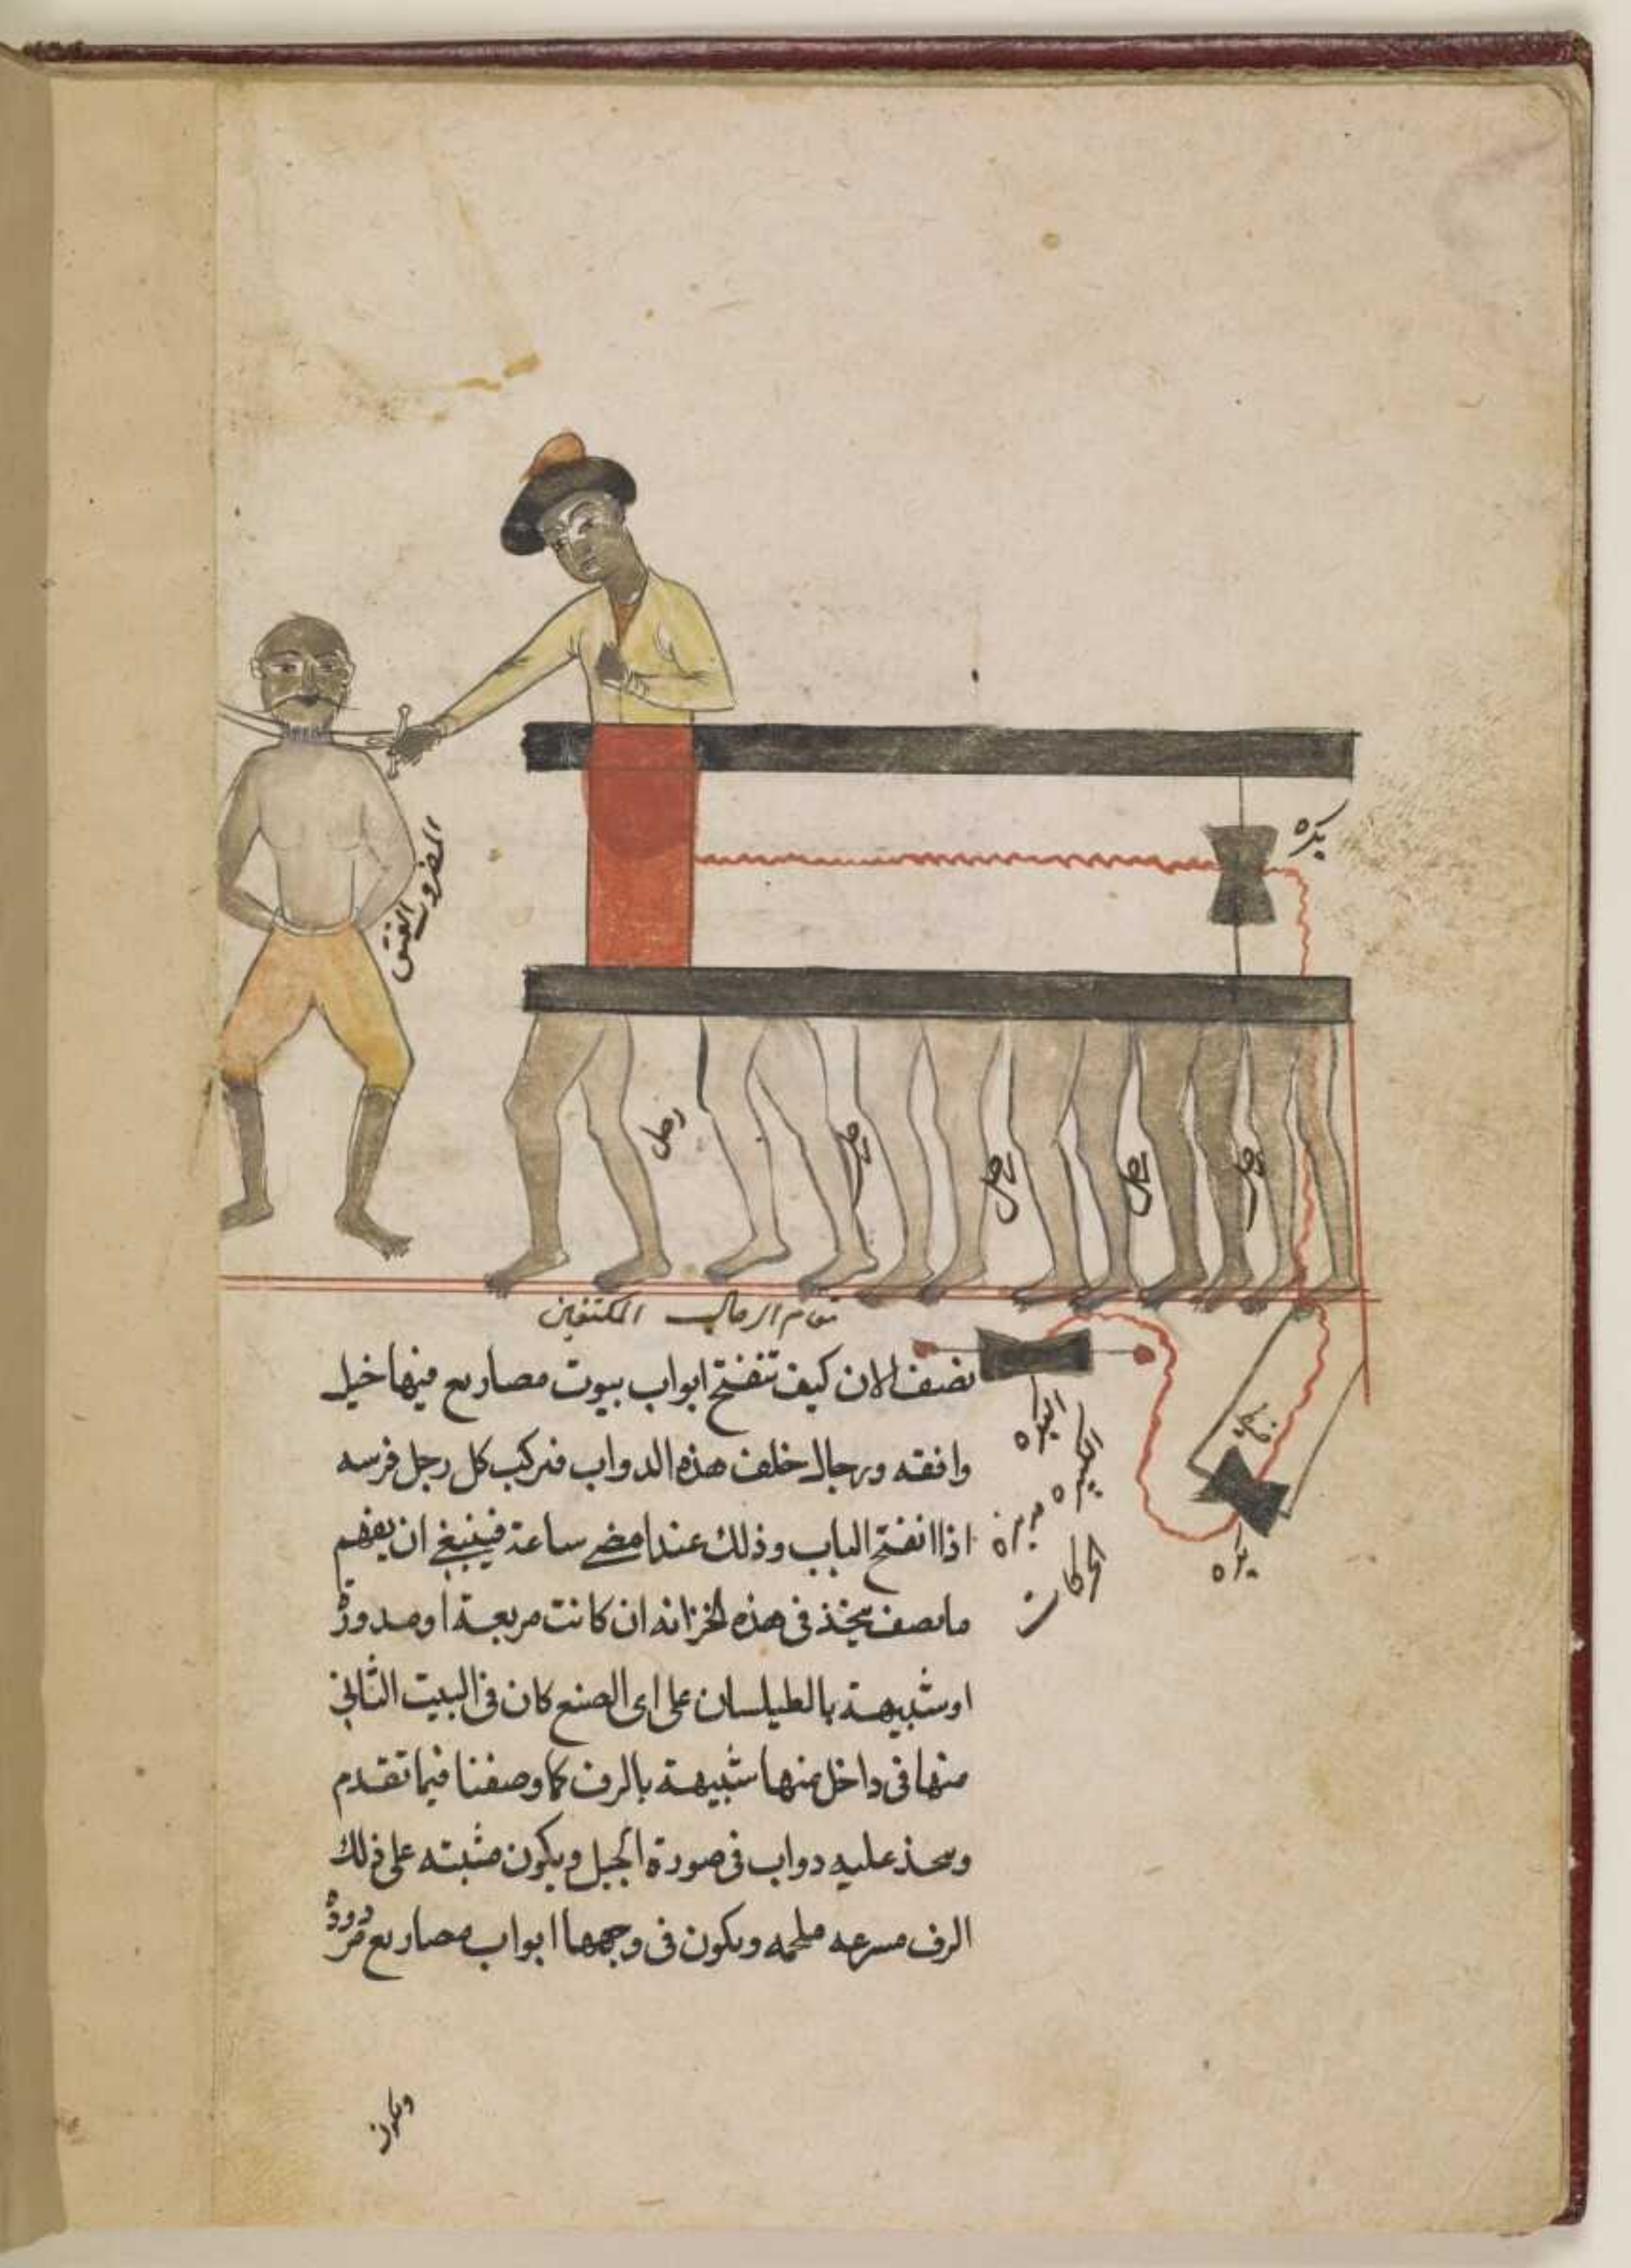 بكره
المضروب العنق
رجل
رجل
رجل
رجل
رجل
مقام الرجال المكتفين
نصف الان كيف تنفتح ابواب بيوت مصاريع فيها خيل
وافقه ورجال خلف هذه الدواب فيركب كل رجل فرسه
اذا انفتح الباب وذلك عندا مضى ساعة فينبغى ان يفهم
ما نصف يتخذ فى هذه الخزانه ان كانت مربعة او مدورة
او شبيهة بالطيلسان على اى الصنع كان فى البيت الثانى
منها فى داخل منها شبيهة بالرف كما وصفنا فيما تقدم
وىىحذ عليه دواب فى صورة الخيل ويكون مثبته على ذلك
الرف مسرجه ملجمه ويكون فى وجهها ابواب مصاريع
البكره
الكبيره
الحركات
بكره
ويكون